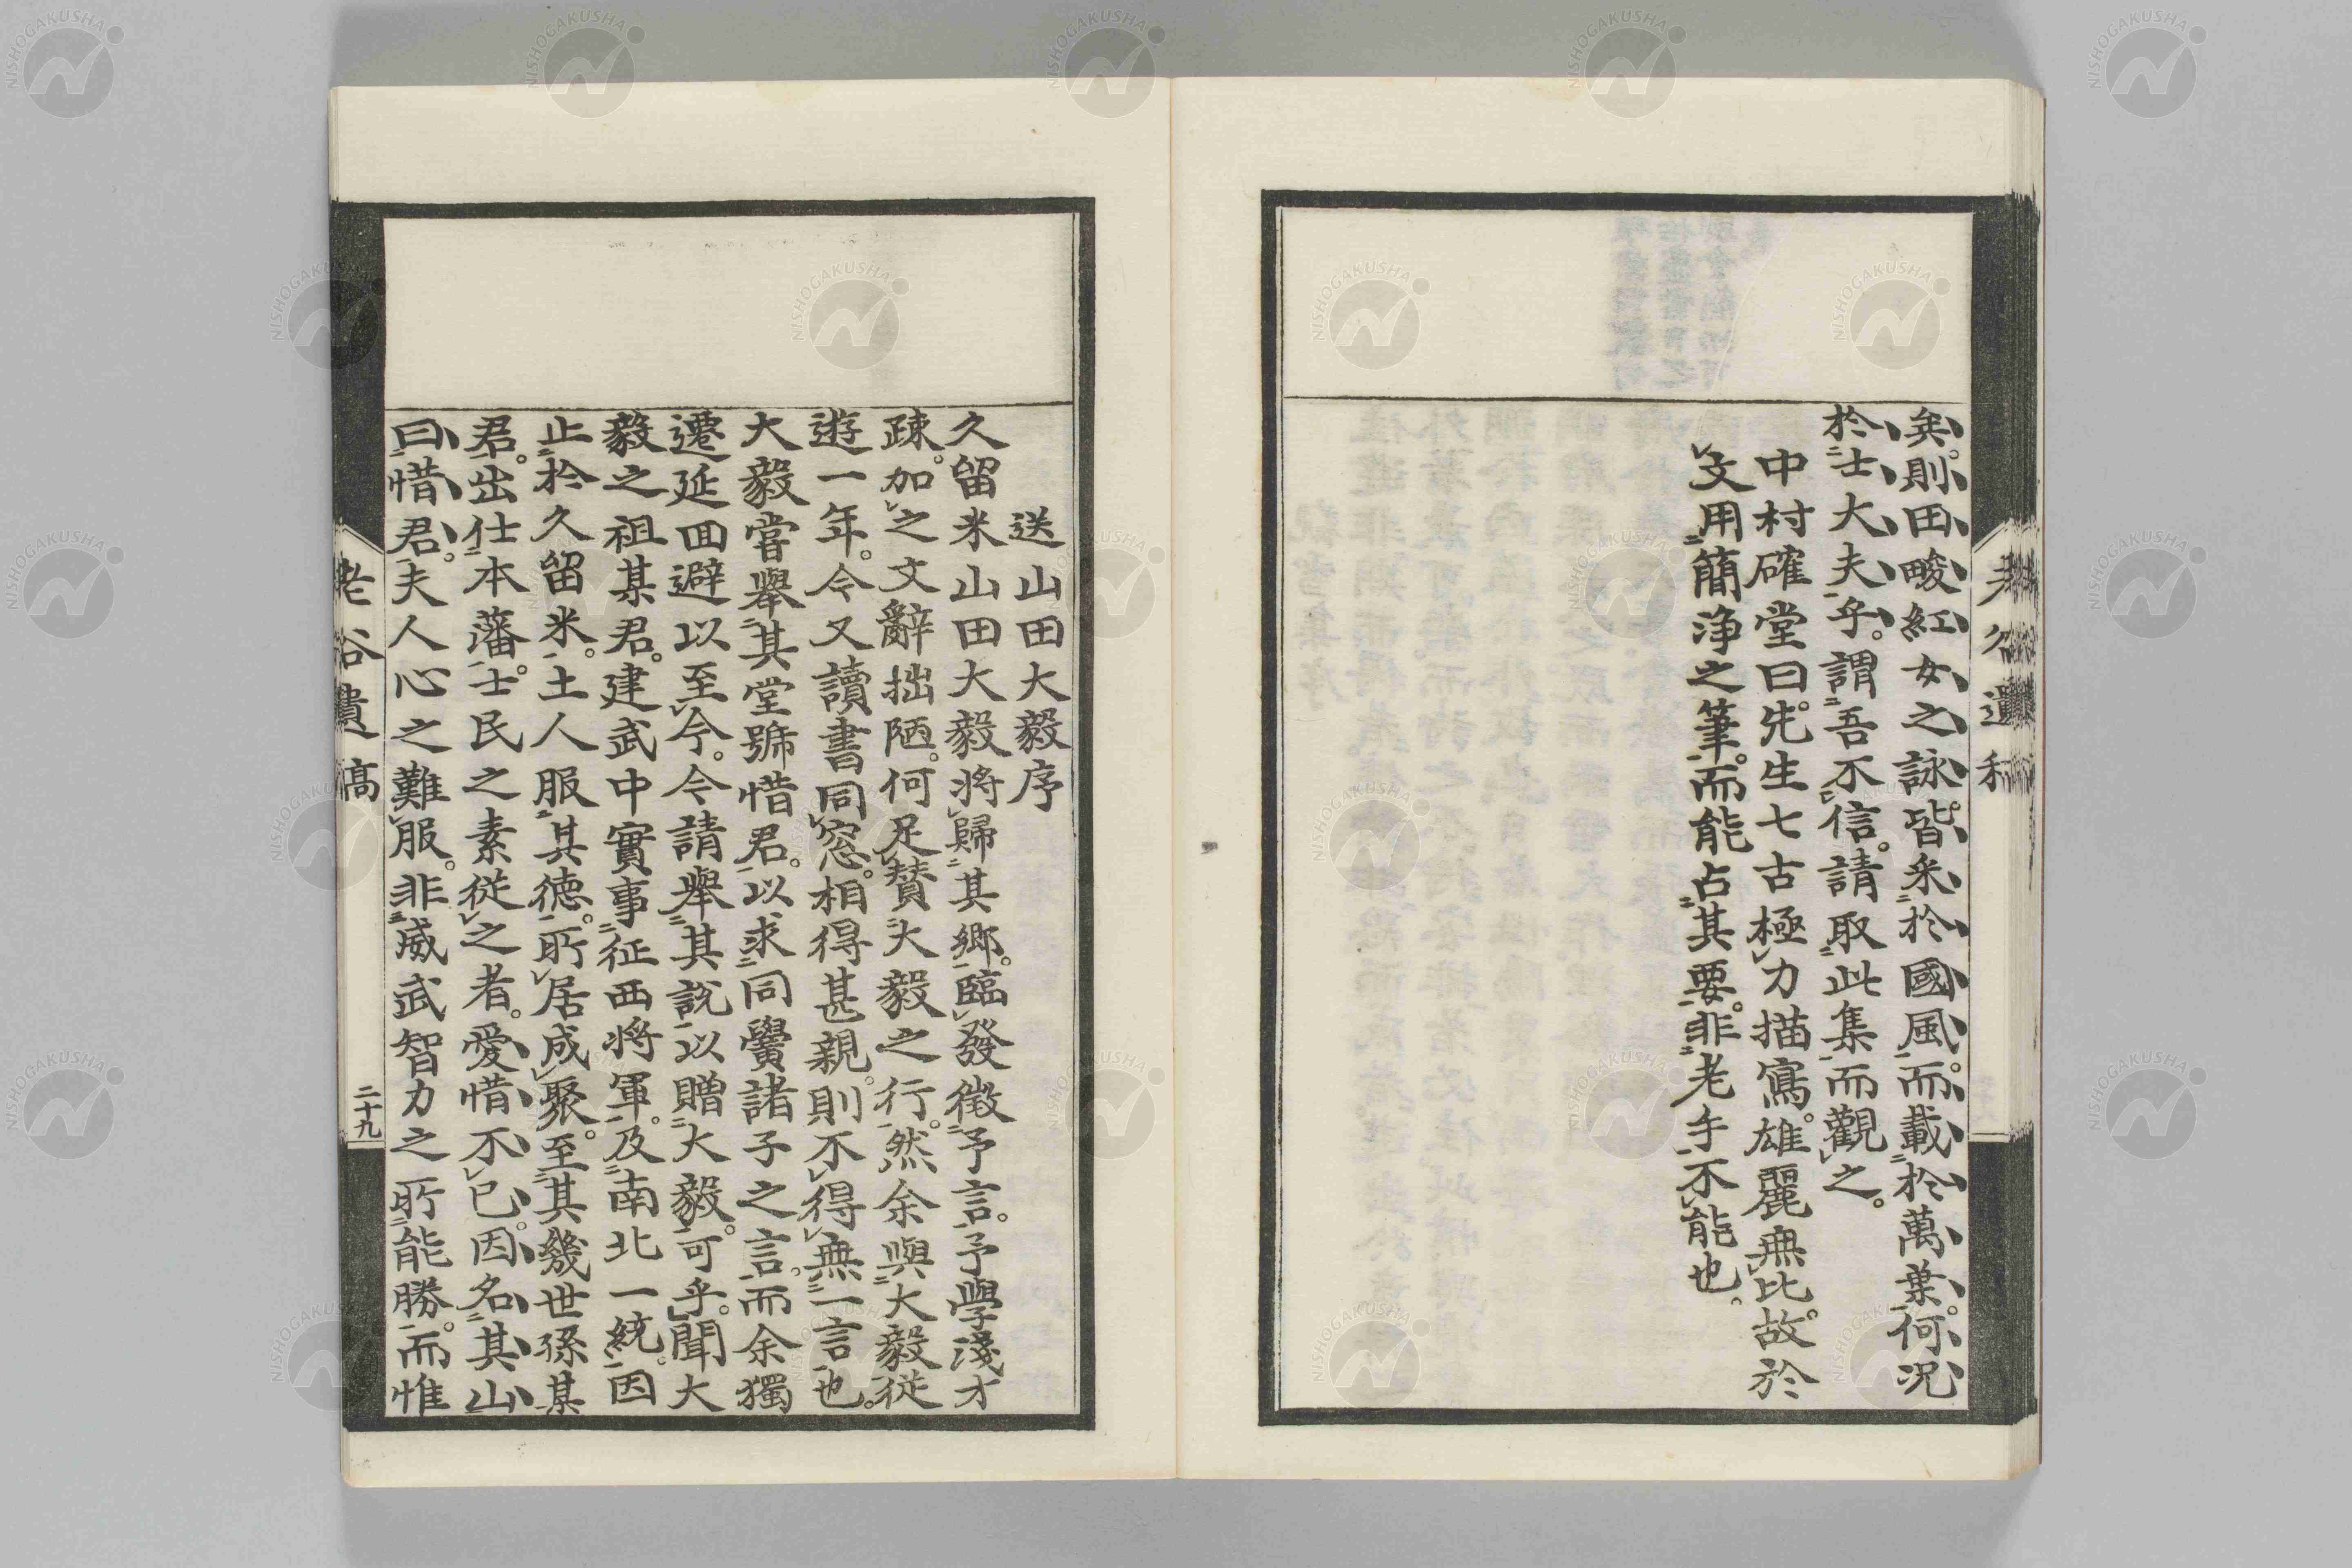 矣。則田畯紅女之詠。皆采於國風。而載於萬葉。何況
於士大夫乎。謂吾不信。請取此集而觀之。
中村確堂曰。先生七古極力描寫。雄麗無比。故於
文用簡淨之筆。而能占其要。非老手不能也。
送山田大毅序
久留米山田大毅將歸其鄉。臨發徵予言。予學淺才
疎。加之文辭拙陋。何足贊大毅之行。然余與大毅從
遊一年。今又讀書同窓。相得甚親。則不得無一言也。
大毅嘗舉其堂號惜君。以求同黌諸子之言。而余獨
遷延回避以至今。今請舉其說以贈大毅。可乎。聞大
毅之祖某君。建武中實事征西將軍。及南北一統。因
止於久留米。土人服其德。所居成聚。至其幾世孫某
君。出仕本藩。士民之素從之者。愛惜不已。因名其山
曰惜君。夫人心之難服。非威武智力之所能勝。而惟
老谷遺高
二十九